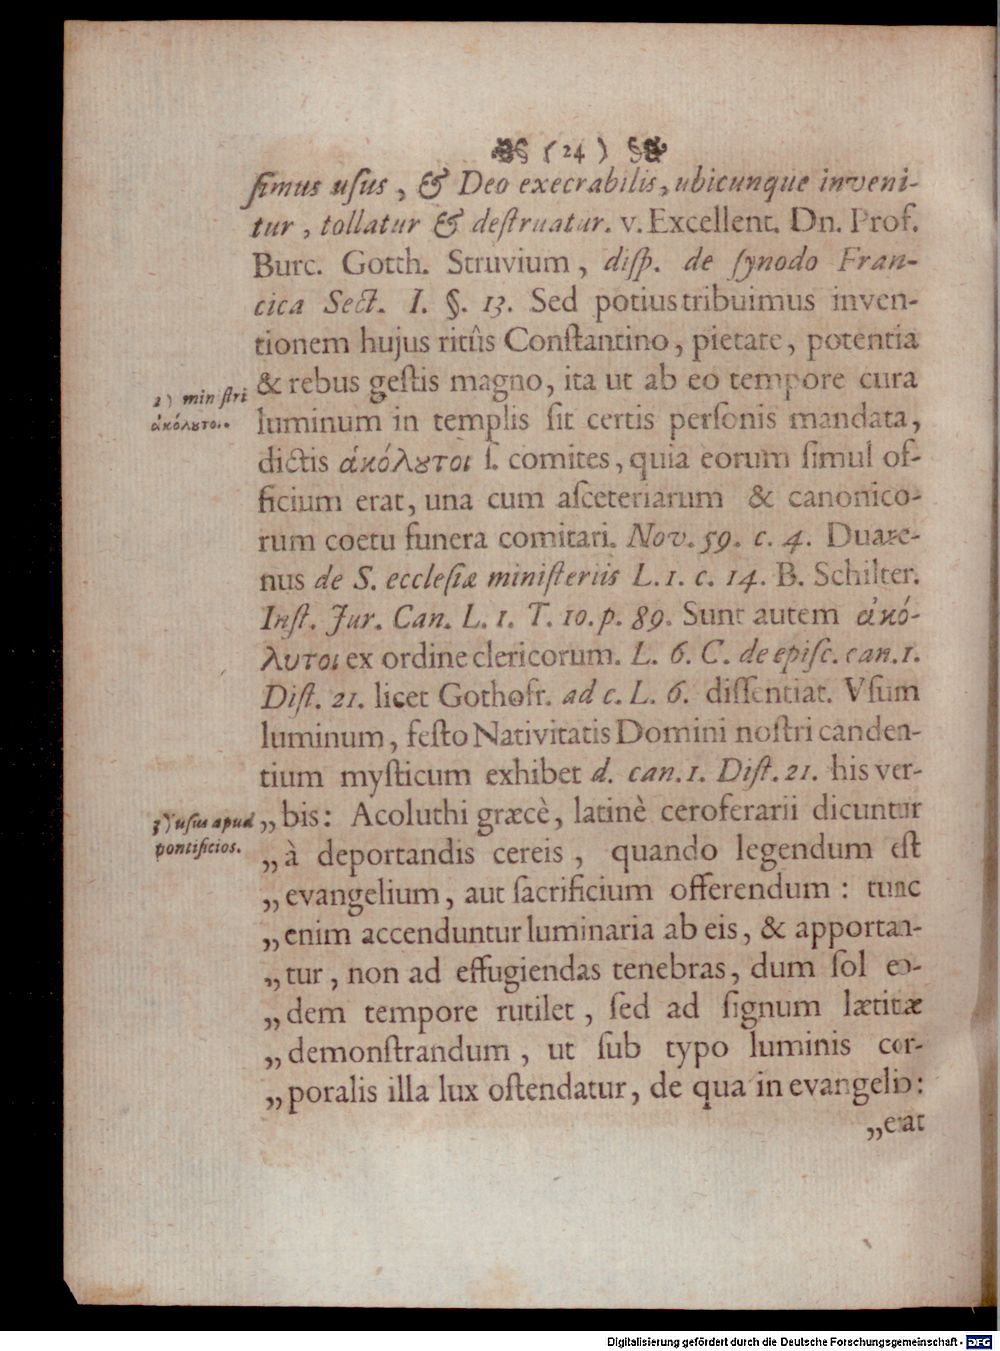 (24)
ſimus uſus, & Deo execrabilis, ubicunque inveni-
tur, tollatur & deſtruatur. v. Excellent. Dn. Prof.
Burc. Gotth. Struvium, diſp. de ſynodo Fran-
cica Sect. I. §. 13. Sed potius tribuimus inven-
tionem hujus ritûs Conſtantino, pietate, potentia
& rebus geſtis magno, ita ut ab eo tempore cura
2) miniſtri
ἀκόλȣτοι.
luminum in templis ſit certis perſonis mandata,
dictis ἀκόλȣτοι ſ. comites, quia eorum ſimul of-
ficium erat, una cum aſceteriarum & canonico-
rum coetu funera comitari. Nov. 59. c. 4. Duare-
nus de S. eccleſiæ miniſteriis L. 1. c. 14. B. Schilter.
Inſt. Jur. Can. L. 1. T. 10. p. 89. Sunt autem ἀκό-
λυτοι ex ordine clericorum. L. 6. C. de epiſc. can. 1.
Diſt. 21. licet Gothofr. ad c. L. 6. diſſentiat. Vſum
luminum, feſto Nativitatis Domini noſtri canden-
tium myſticum exhibet d. can. 1. Diſt. 21. his ver-
3) uſus apud
pontificios.
„bis: Acoluthi græcè, latinè ceroferarii dicuntur
„à deportandis cereis, quando legendum eſt
„evangelium, aut ſacrificium offerendum: tunc
„enim accenduntur luminaria ab eis, & apportan-
„tur, non ad effugiendas tenebras, dum ſol eo-
„dem tempore rutilet, ſed ad ſignum lætitiæ
„demonſtrandum, ut ſub typo luminis cor-
„poralis illa lux oſtendatur, de qua in evangelio:
„erat
Digitalisierung gefördert durch die Deutsche Forschungsgemeinschaft - DFG